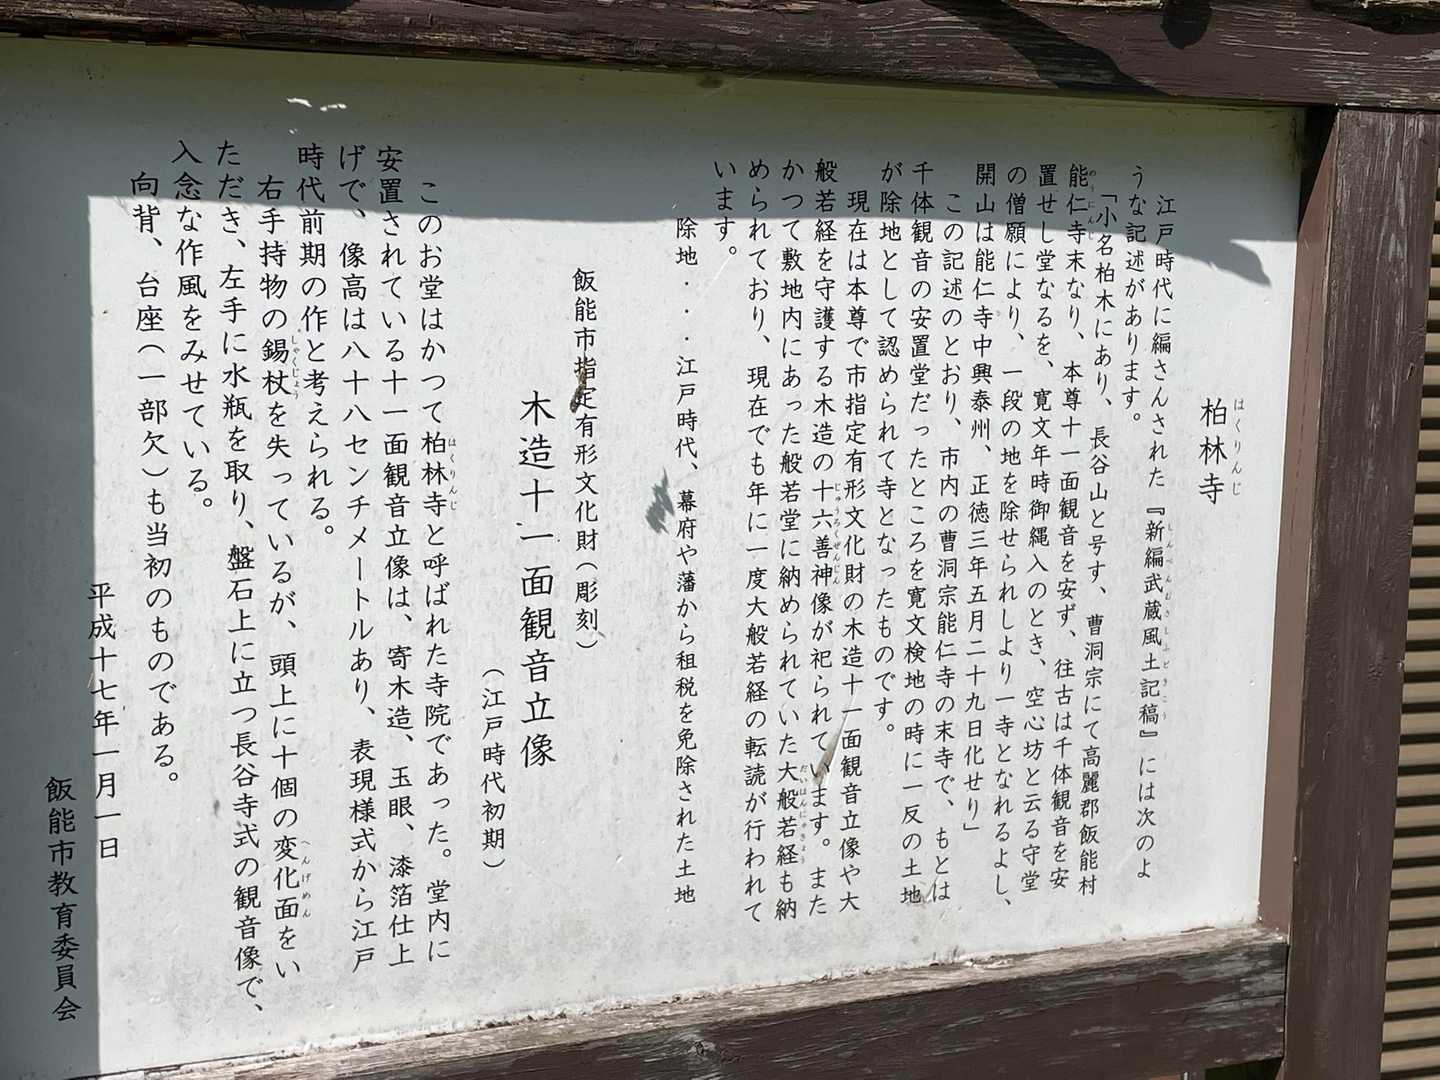 柏林寺
はくりんじ
江戸時代に編さんされた『新編武蔵風土記稿』には次のよ
しんぺんむさしふどきこう
うな記述があります。
「小名柏木にあり、長谷山と号す、曹洞宗にて高麗郡飯能村
能仁寺末なり、本尊十一面観音を安ず、往古は千体観音を安
のうにんじ
置せし堂なるを、寛文年時御縄入のとき、空心坊と云る守堂
の僧願により、一段の地を除せられしより一寺となれるよし、
開山は能仁寺中興泰州、正徳三年五月二十九日化せり」
この記述のとおり、市内の曹洞宗能仁寺の末寺で、もとは
千体観音の安置堂だったところを寛文検地の時に一反の土地
が除地として認められて寺となったものです。
現在は本尊で市指定有形文化財の木造十一面観音立像や大
般若経を守護する木造の十六善神像が祀られています。また
じゅうろくぜんじん
かつて敷地内にあった般若堂に納められていた大般若経も納
だいはんにゃきょう
められており、現在でも年に一度大般若経の転読が行われて
います。
除地・・・江戸時代、幕府や藩から租税を免除された土地
飯能市指定有形文化財(彫刻)
木造十一面観音立像
(江戸時代初期)
このお堂はかつて柏林寺と呼ばれた寺院であった。堂内に
はくりんじ
安置されている十一面観音立像は、寄木造、玉眼、漆箔仕上
げで、像高は八十八センチメートルあり、表現様式から江戸
時代前期の作と考えられる。
右手持物の錫杖を失っているが、頭上に十個の変化面をい
しゃくじょう
へんげめん
ただき、左手に水瓶を取り、盤石上に立つ長谷寺式の観音像で、
入念な作風をみせている。
向背、台座(一部欠)も当初のものである。
平成十七年一月一日
飯能市教育委員会